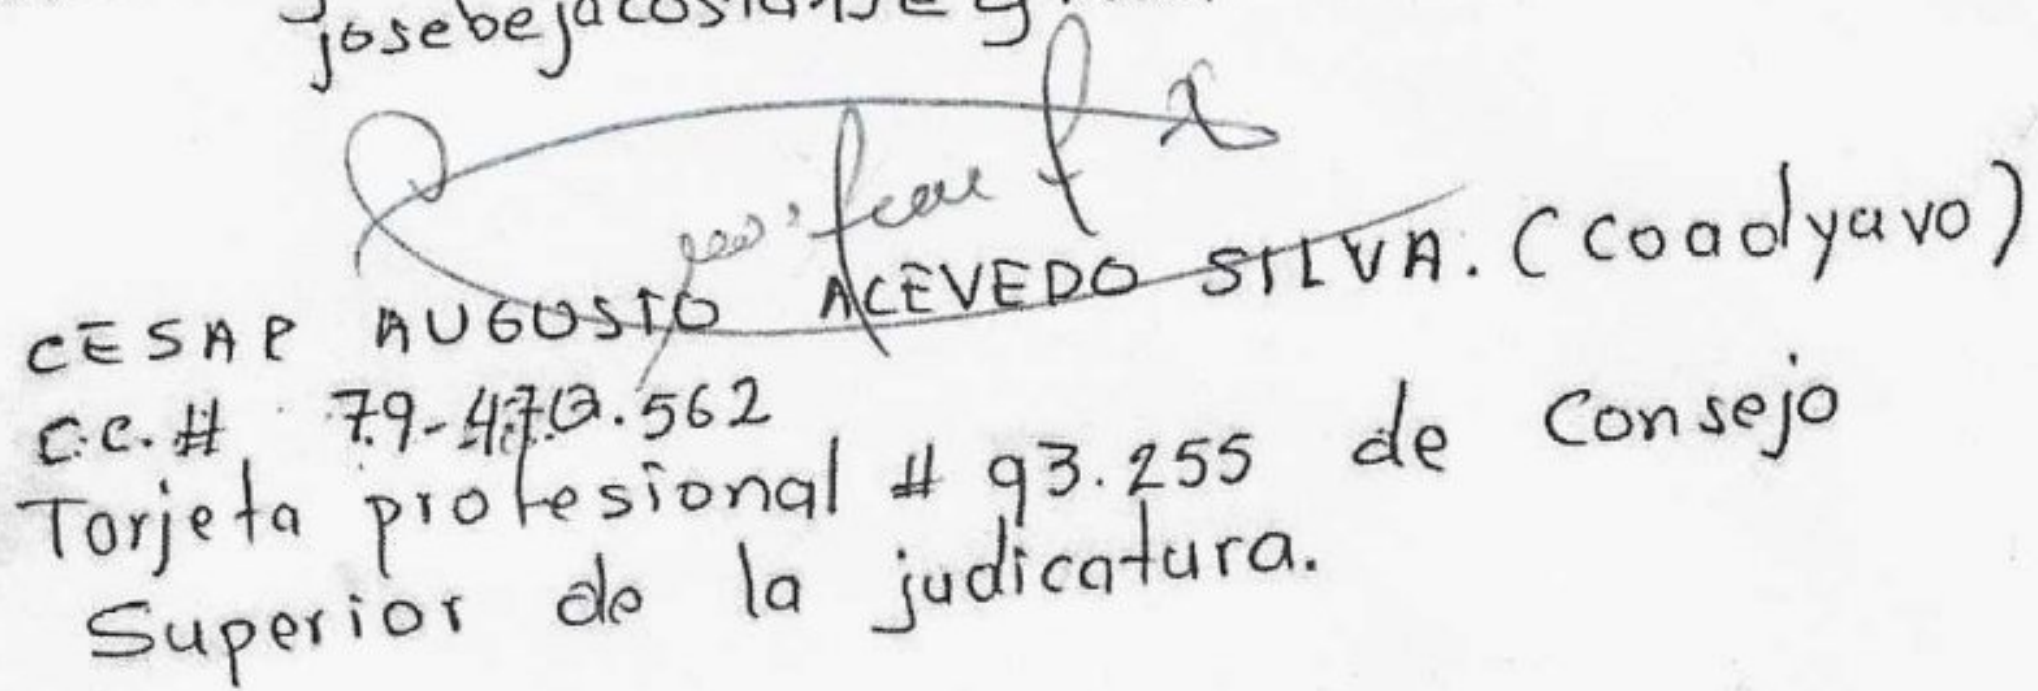 CESAR AUGUSTO ACEVEDO SILVA. (Coadyuvo)
C.C. #
Tarjeta profesional # 93.255 de Consejo
Superior de la judicatura.